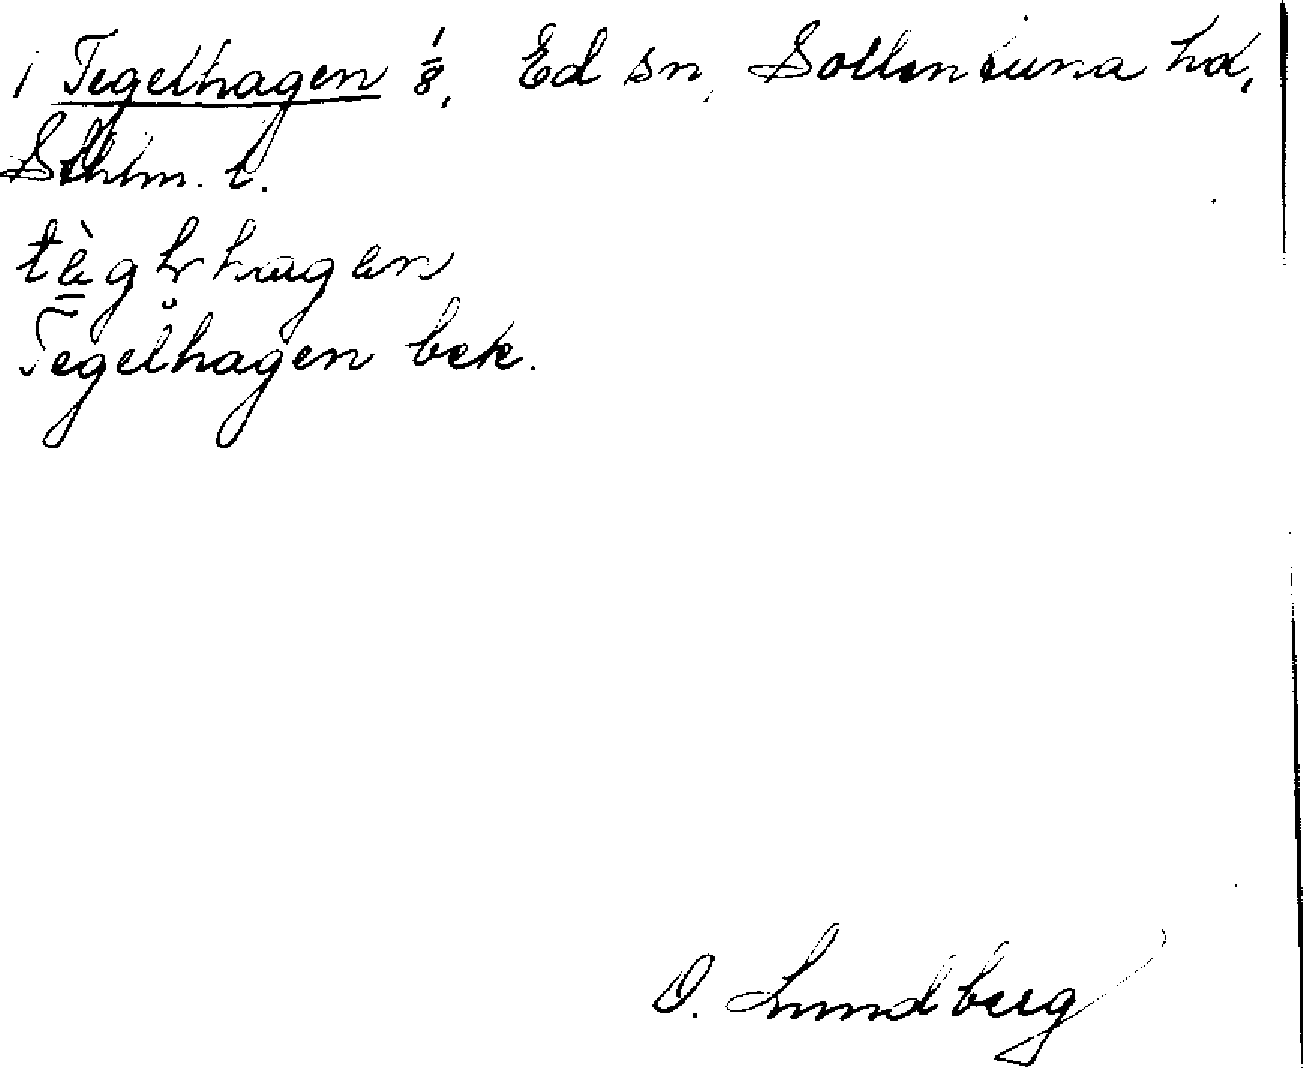 i Tegelhagen 1/8, Ed sn, Sollentuna hd,
Sthlm. l.
Tegelhagen bek.
O. Lundberg